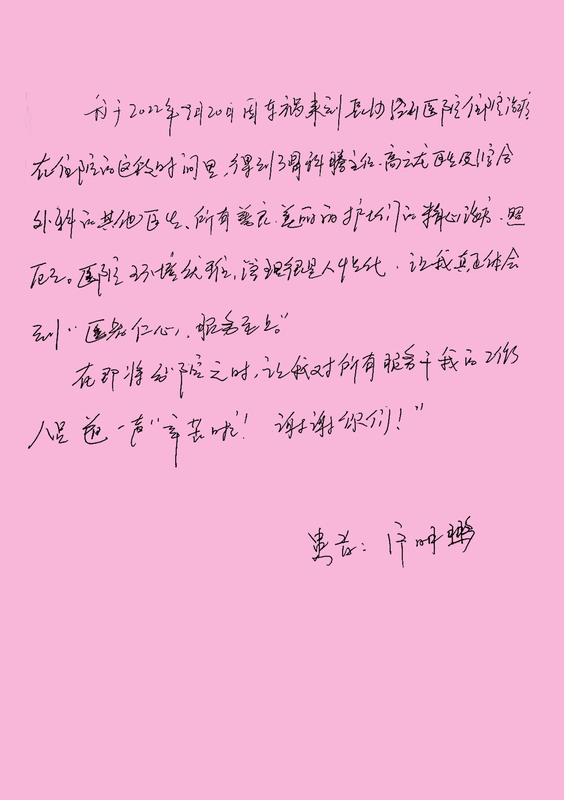 我于2022年9月20日因车祸来到长沙经开医院住院治疗
在住院的这段时间里,得到了骨科腾主任、高云龙医生及综合
外科的其他医生、所有善良、美丽的护士们的精心治疗、照
顾。医院环境优雅,管理很是人性化,让我真正体会
到“医者仁心,服务至上。”
在即将出院之时,让我对所有服务于我的工作
人员道一声“辛苦啦!谢谢你们!”
患者:明